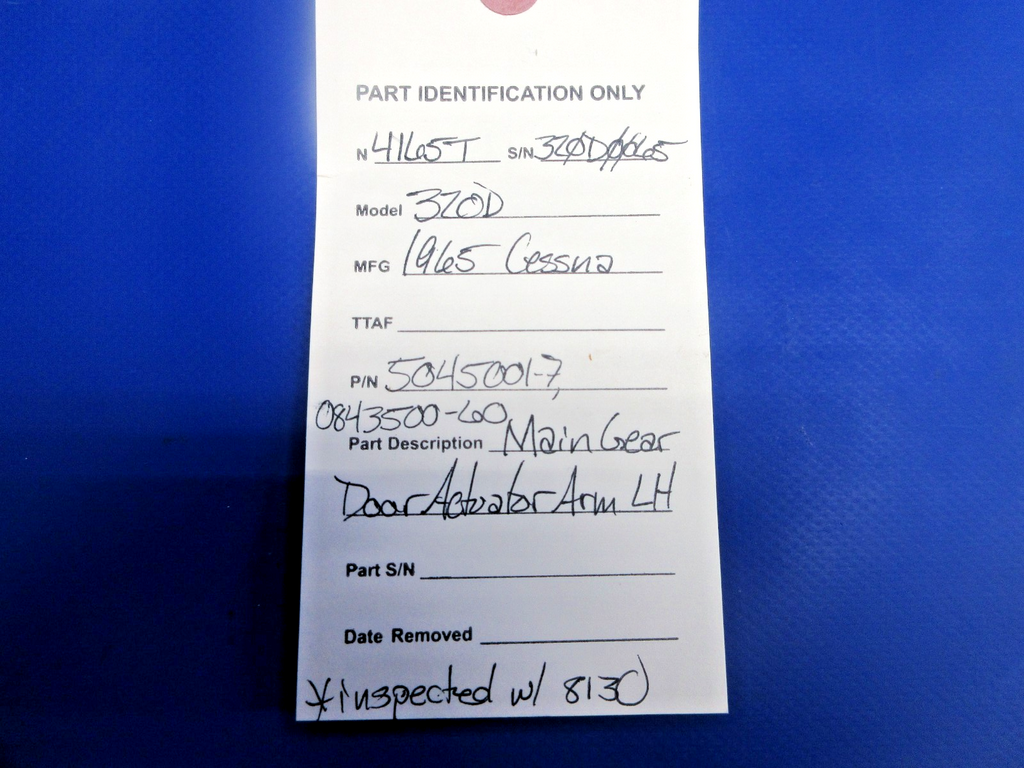 PART IDENTIFICATION ONLY
N 4165T S/N 320D0065
Model 320D
MFG 1965 Cessna
TTAF
P/N 5045001-7,
0843500-60
Part Description Main Gear
Door Actuator Arm LH
Part S/N
Date Removed
*inspected w/ 8130